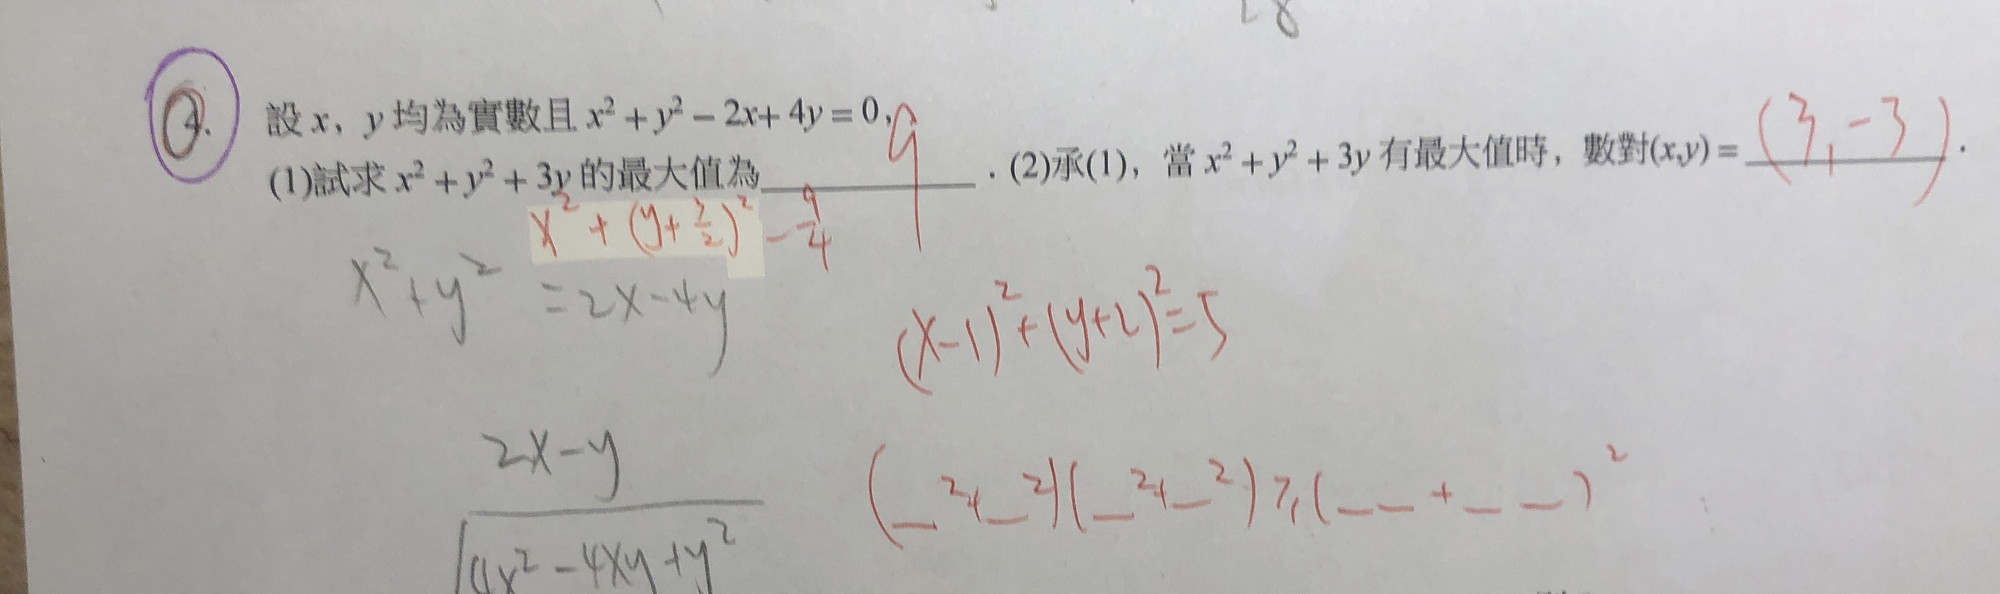 28
4. 設 x, y 均為實數且 x² + y² − 2x + 4y = 0,
(1)試求 x² + y² + 3y 的最大值為 9 . (2)承(1), 當 x² + y² + 3y 有最大值時, 數對(x,y) = (3, -3) .
x² + (y + 3/2)² - 9/4
x² + y² = 2x - 4y
(x-1)² + (y+2)² = 5
2x - y
(_² + _²)(_² + _²) ≥ (_ _ + _ _)²
√4x² - 4xy + y²